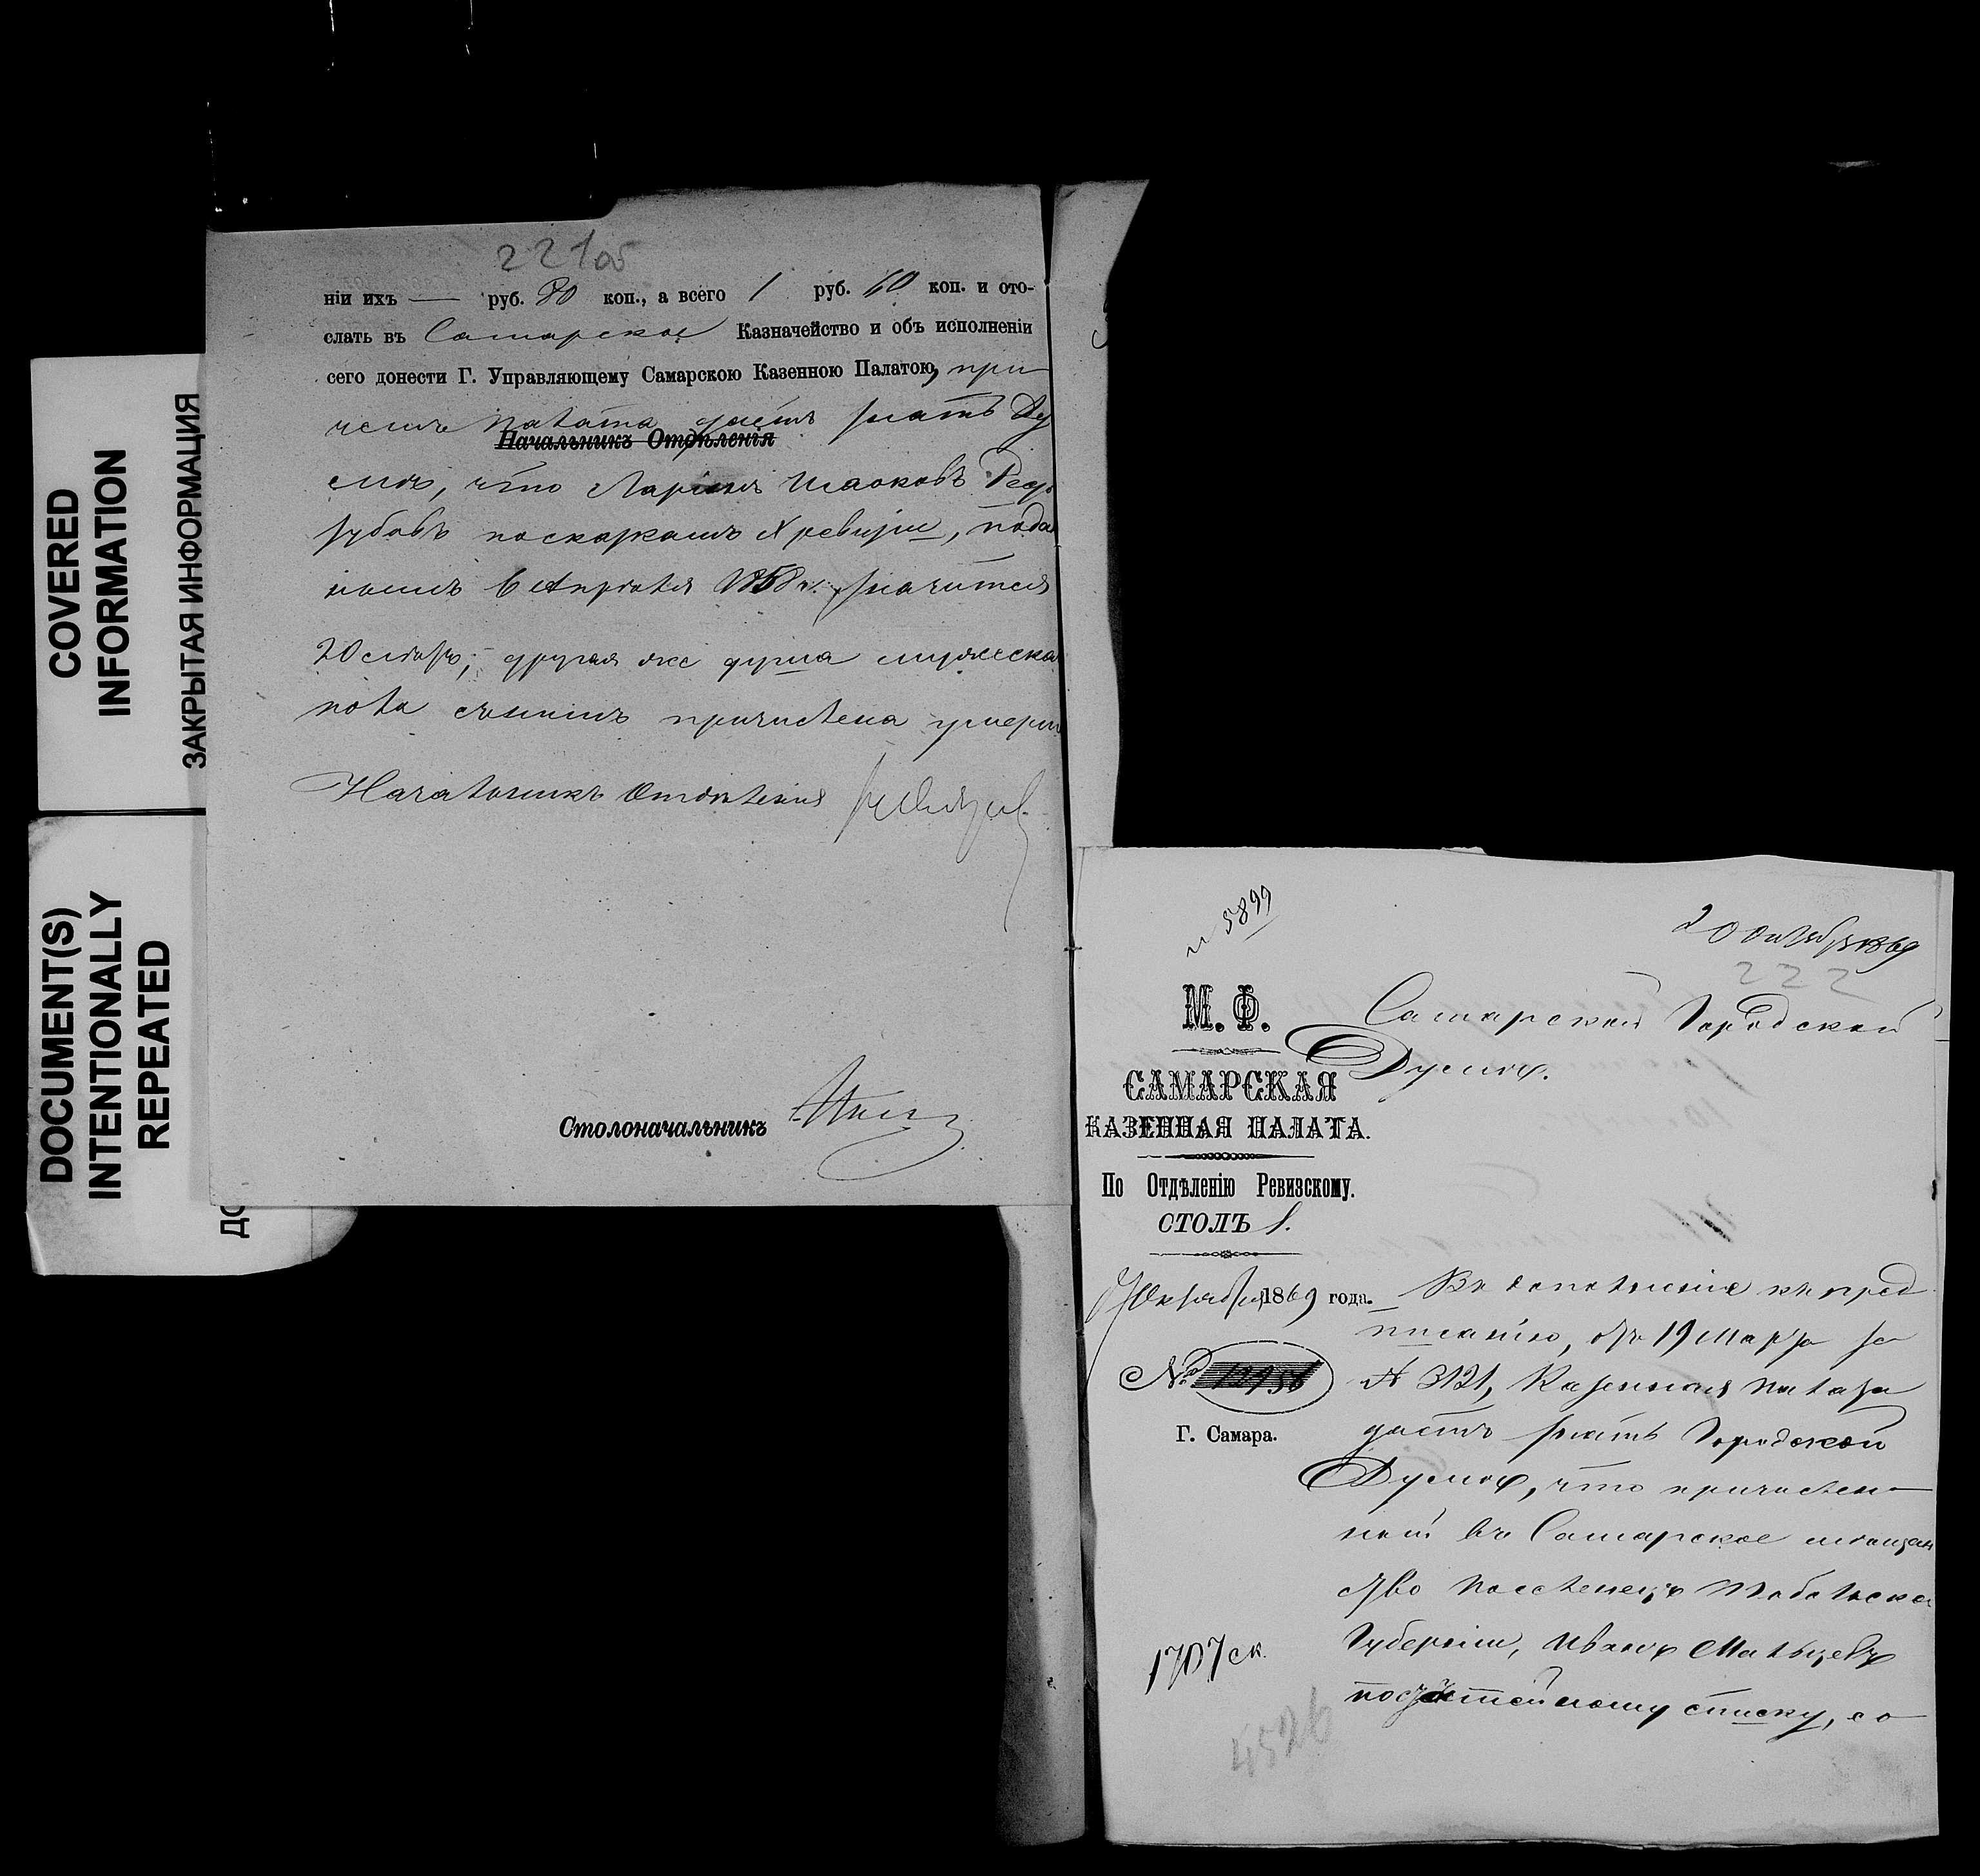 COVERED
INFORMATION
ЗАКРЫТАЯ ИНФОРМАЦИЯ
DOCUMENT(S)
INTENTIONALLY
REPEATED
ДО
221об
ніи ихъ — руб. 80 коп., а всего 1 руб. 60 коп. и ото-
слать въ Самарское Казначейство и объ исполненіи
сего донести Г. Управляющему Самарскою Казенною Палатою, при
чемъ Палата даетъ знать Ду
Начальникъ Отдѣленія
мѣ, что Исаковъ
зубовъ по сказкамъ X ревизіи, подан
нымъ 6 Апрѣля 1858 г. значится
20 лѣтъ; другая же душа мужеска
пола причислена
Начальникъ Отдѣленія
Столоначальникъ
№ 5899
20 Октября 1869
222
М. Ф.
САМАРСКАЯ
КАЗЕННАЯ ПАЛАТА.
По Отдѣленію Ревизскому.
СТОЛЪ 1.
Октября 1869 года.
№ 12956
Г. Самара.
1707 ск.
4526
Самарской Городской
Думѣ.
Въ дополненіе къ пред
писанію, отъ 19 Марта за
№ 3121, Казенная Палата
даетъ знать Городской
Думѣ, что причислен
ный въ Самарское мѣщан
ство поселенецъ Тобольской
Губерніи, Иванъ Мальцевъ
по статейному списку, со